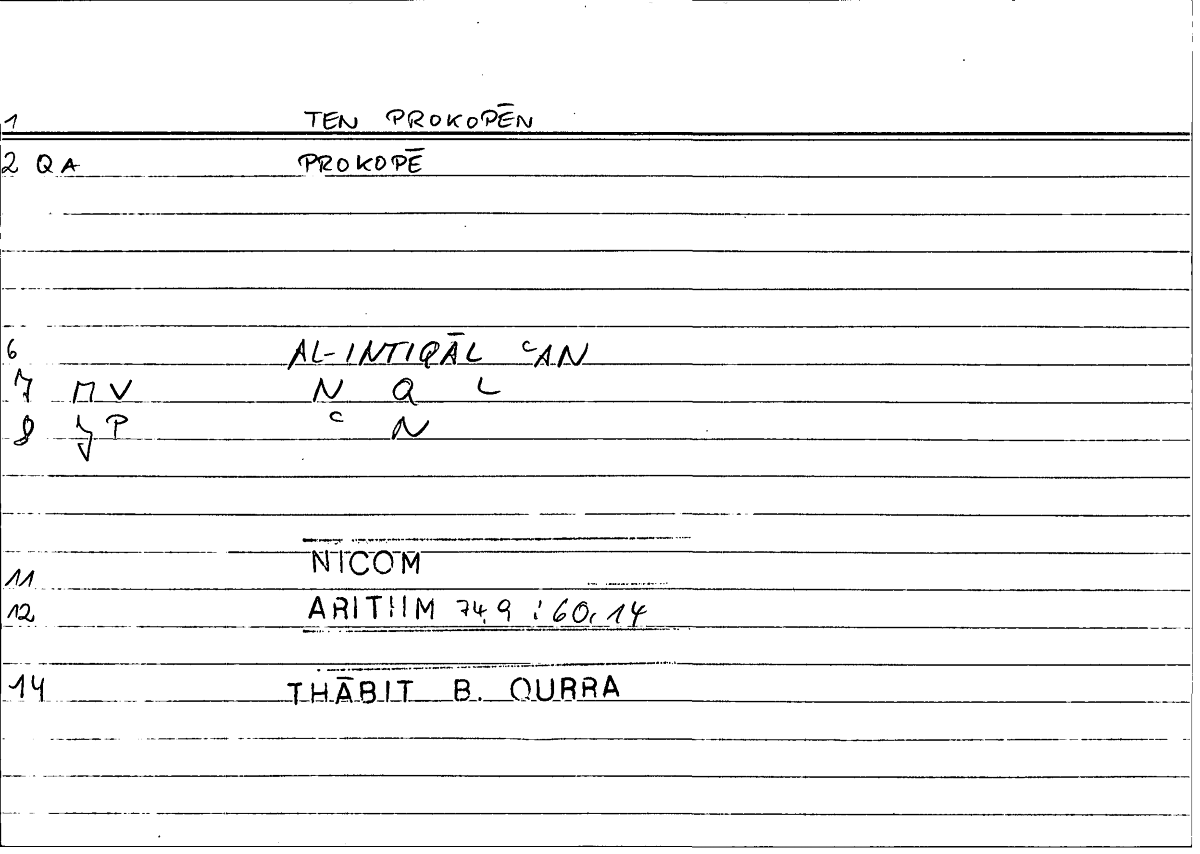 1 TEN PROKOPĒN
2 QA PROKOPĒ
6 AL-INTIQĀL ᶜAN
7 N Q L
8 ᶜ N
11 NICOM
12 ARITHM 74,9 : 60,14
14 THĀBIT B. QURRA